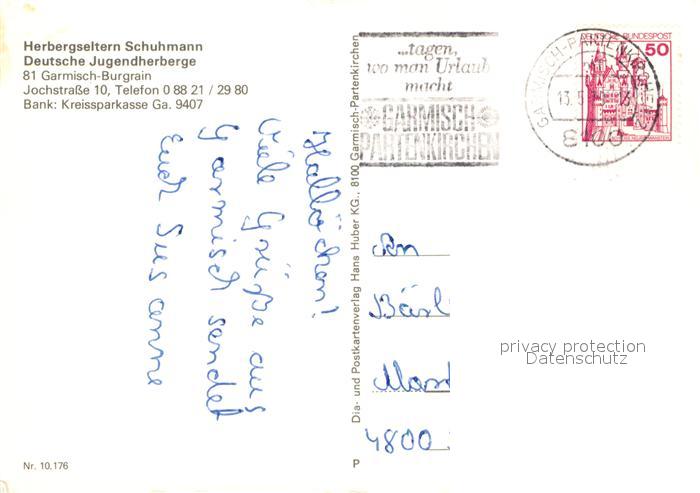 Herbergseltern Schuhmann
Deutsche Jugendherberge
81 Garmisch-Burgrain
Jochstraße 10, Telefon 0 88 21 / 29 80
Bank: Kreissparkasse Ga. 9407
Hallöchen!
Viele Grüße aus
Garmisch sendet
Euch Susanne
Nr. 10.176
Dia- und Postkartenverlag Hans Huber KG., 8100 Garmisch-Partenkirchen
P
...tagen,
wo man Urlaub
macht
GARMISCH
PARTENKIRCHEN
GARMISCH-PARTENKIRCHEN
13.5.
8100
DEUTSCHE BUNDESPOST
50
An
4800
privacy protection
Datenschutz